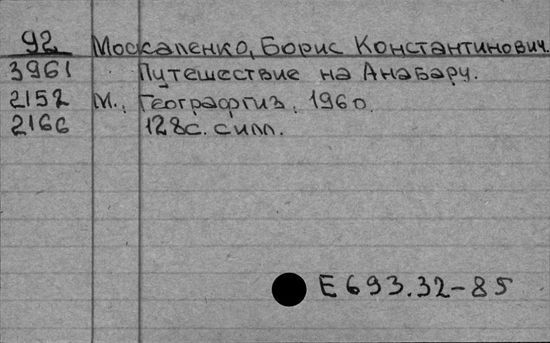 92 Москаленко, Борис Константинович.
3961 Путешествие на Анабару.
2152 М., Географгиз, 1960.
2166 128с. силл.
Е693.32-85